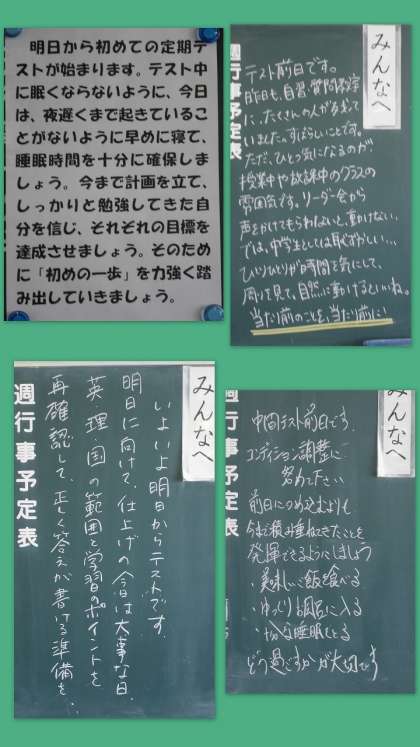 明日から初めての定期テ
ストが始まります。テスト中
に眠くならないように、今日
は、夜遅くまで起きているこ
とがないように早めに寝て、
睡眠時間を十分に確保しま
しょう。今まで計画を立て、
しっかりと勉強してきた自
分を信じ、それぞれの目標を
達成させましょう。そのため
に「初めの一歩」を力強く踏
み出していきましょう。
みんなへ
週行事予定表
テスト前日です。
昨日も、自習、質問教室
に、たくさんの人が参加して
いました。すばらしいことです。
ただ、ひとつ気になるのが
授業中や放課中のクラスの
雰囲気です。リーダー会から
声をかけてもらわないと、動かない。
では、中学生としては恥ずかしい…
ひとりひとりが時間を気にして、
周りを見て、自然に動けるといいね。
当たり前のことを、当たり前に!
みんなへ
週行事予定表
いよいよ明日からテストです。
明日に向けて、仕上げの今日は大事な日。
英・理・国の範囲と学習のポイントを
再確認して、正しく答えが書ける準備を…
みんなへ
週行事予定表
中間テスト前日です。
コンディション調整に
努めて下さい
前日につめ込むよりも
今まで積み重ねてきたことを
発揮できるようにしましょう
・美味しいご飯を食べる
・ゆっくりお風呂に入る
・十分な睡眠をとる
どう過ごすかが大切です